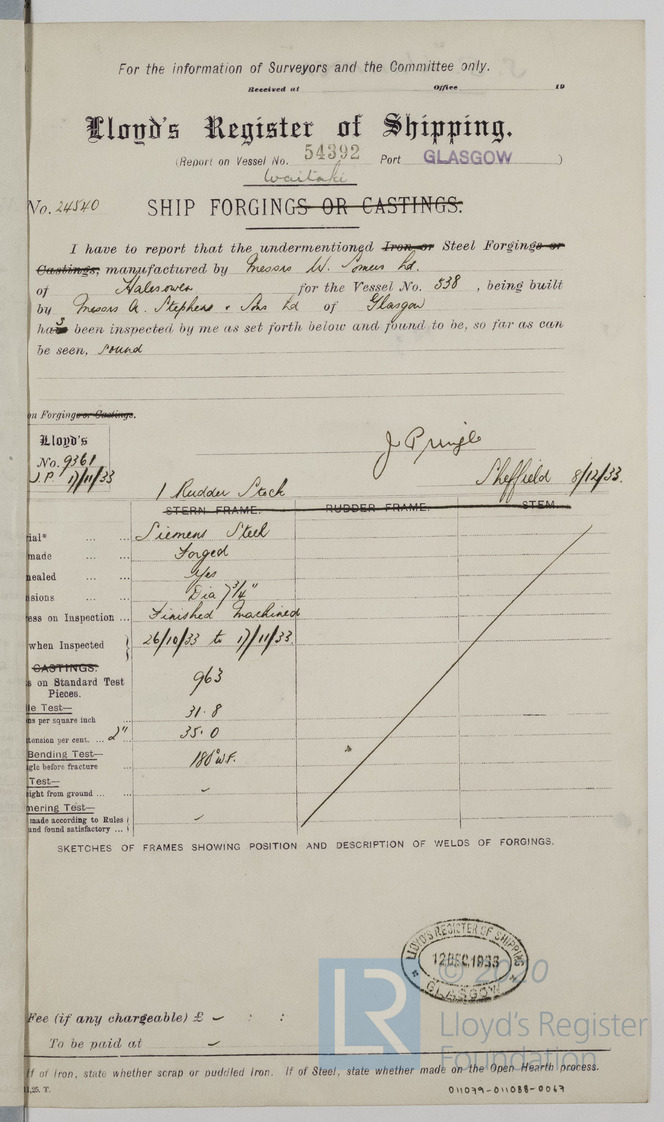 For the information of Surveyors and the Committee only.
Received at Office 19
Lloyd's Register of Shipping.
(Report on Vessel No. 54392 Port GLASGOW )
Waitaki
No. 24540 SHIP FORGINGS OR CASTINGS.
I have to report that the undermentioned Iron or Steel Forgings or
Castings, manufactured by Messrs W. Somers Ld.
of Halesowen for the Vessel No. 538 , being built
by Messrs A. Stephen & Sons Ld of Glasgow
has been inspected by me as set forth below and found to be, so far as can
be seen, sound
on Forging or Castings.
Lloyd's
No. 9361
J.P 17/11/33
J Pringle
Sheffield 8/12/33.
1 Rudder Stock
STERN FRAME. RUDDER FRAME. STEM.
ial* ... ... Siemens Steel
made ... ... Forged
nealed ... ... Yes
nsions ... ... Dia 7 3/4"
ess on Inspection ... Finished Machined
when Inspected } 26/10/33 to 17/11/33.
CASTINGS.
s on Standard Test
Pieces. 963
le Test—
ns per square inch 31.8
tension per cent. ... 2" 35.0
Bending Test—
gle before fracture 180° W.F.
Test—
ight from ground ... ✓
mering Test—
made according to Rules
and found satisfactory ... ✓
SKETCHES OF FRAMES SHOWING POSITION AND DESCRIPTION OF WELDS OF FORGINGS.
LLOYD'S REGISTER OF SHIPPING
12 DEC 1933
GLASGOW
© 2020
LR
Lloyd's Register
Foundation
Fee (if any chargeable) £ ✓ : :
To be paid at ✓
If of Iron, state whether scrap or puddled Iron. If of Steel, state whether made on the Open Hearth process.
1,25. T.
011079-011088-0067